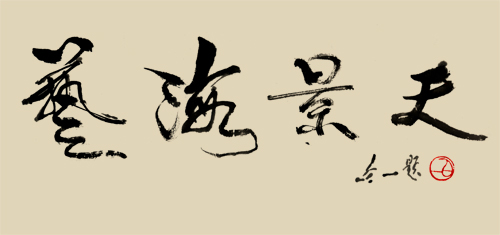 藝海景天
合一题